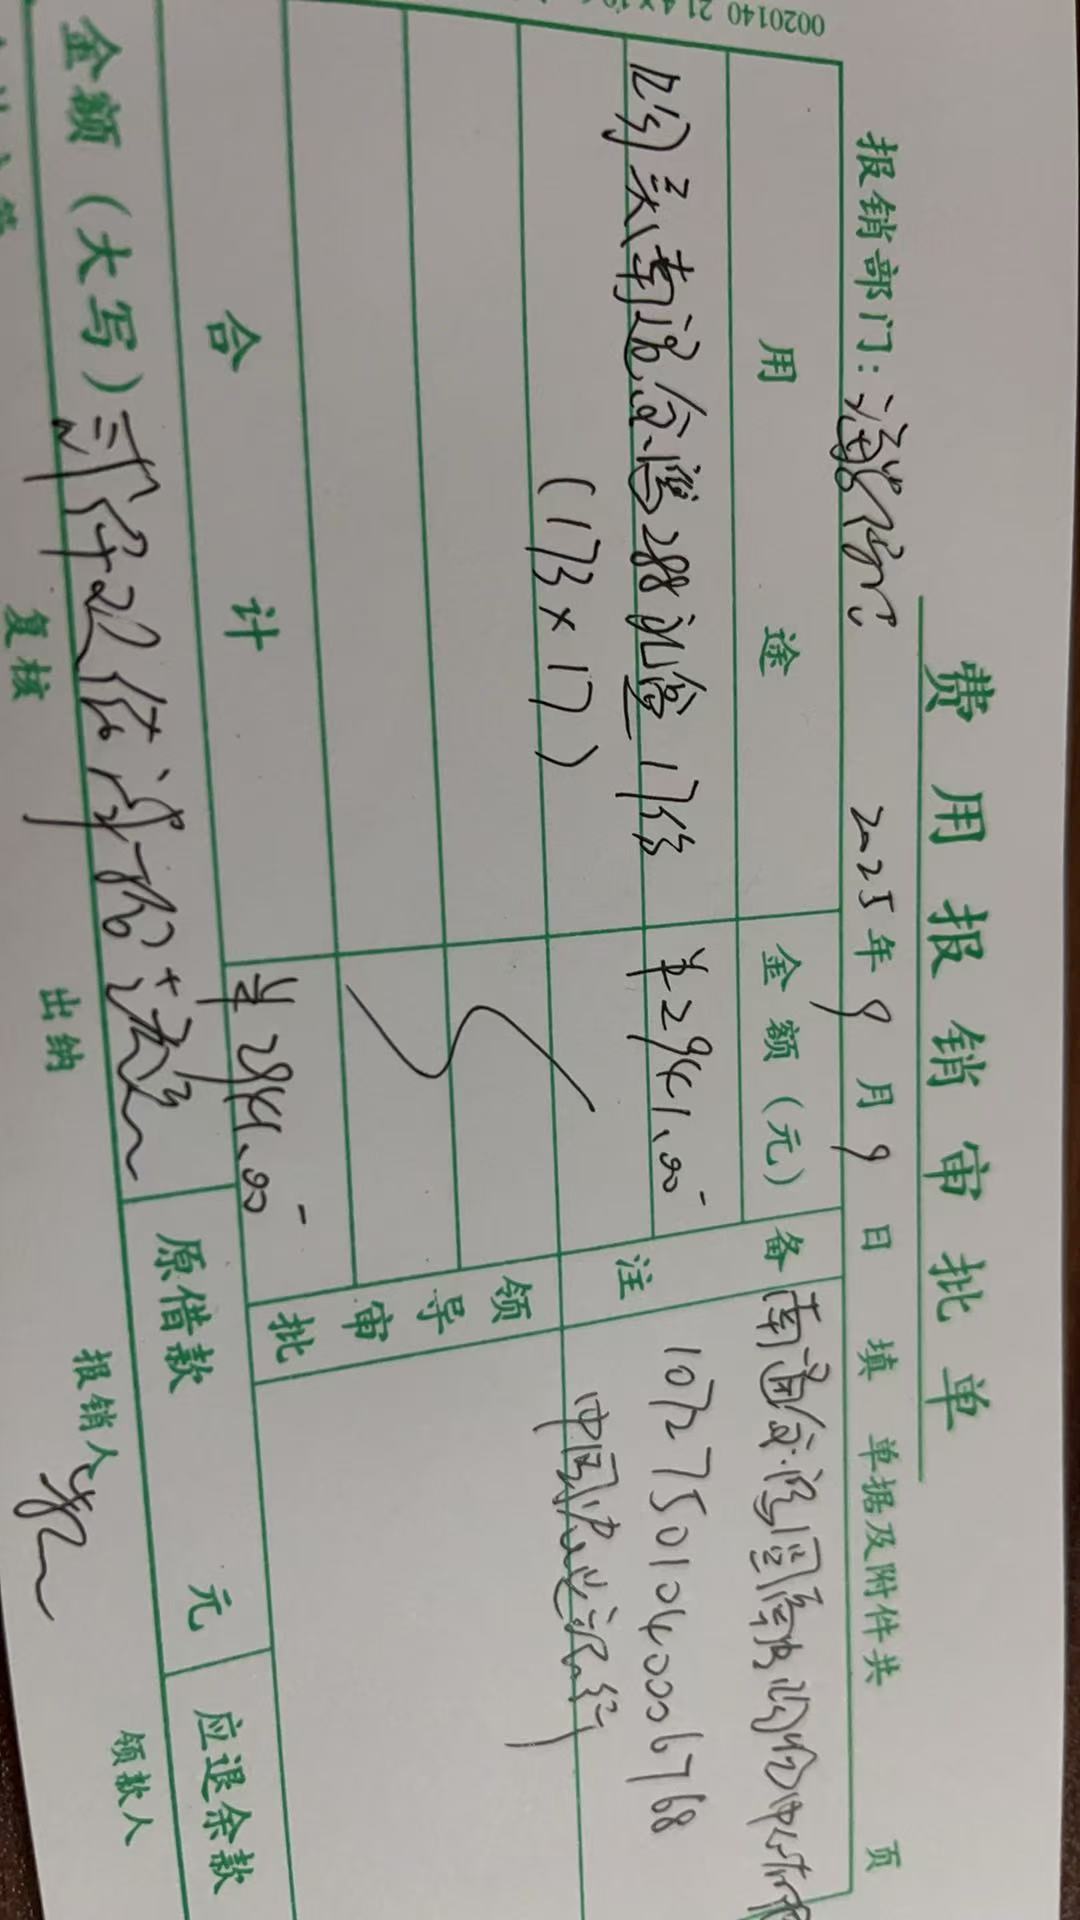 费用报销审批单
报销部门：
2025年9月9日填
单据及附件共 页
用途
金额（元）
备注
购买南通金鹰288礼盒17份
￥2941.00
(173×17)
南通金鹰国际购物中心有限
10727501040006768
中国建设银行
领导审批
合计
￥2941.00
金额（大写）贰仟玖佰肆拾壹元
原借款 元
应退余款
复核
出纳
报销人
领款人
0020140 21.4×1